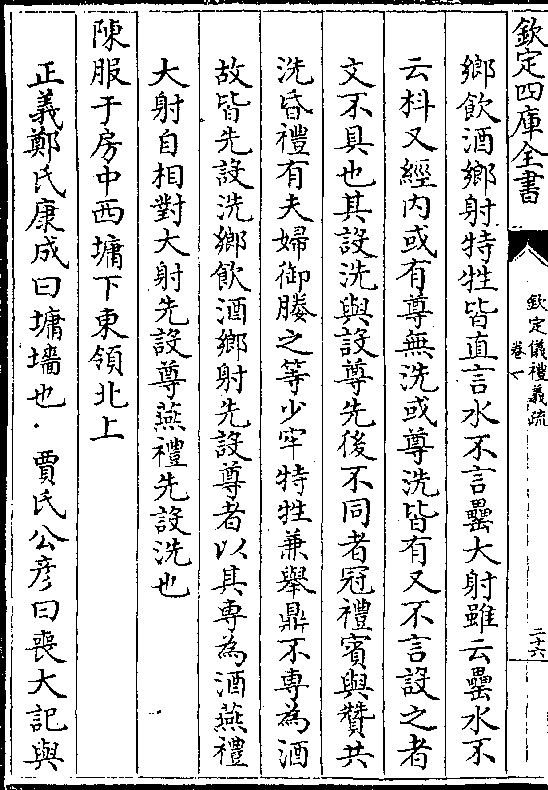 欽定四庫全書
欽定儀禮義疏
卷一
二十六
鄉飲酒鄉射特牲皆直言水不言罍大射雖云罍水不
云枓又經內或有尊無洗或尊洗皆有又不言設之者
文不具也其設洗與設尊先後不同者冠禮賓與贊共
洗昏禮有夫婦御媵之等少牢特牲兼舉鼎不專為酒
故皆先設洗鄉飲酒鄉射先設尊者以其專為酒燕禮
大射自相對大射先設尊燕禮先設洗也
陳服于房中西墉下東領北上
正義鄭氏康成曰墉墻也. 賈氏公彥曰喪大記與